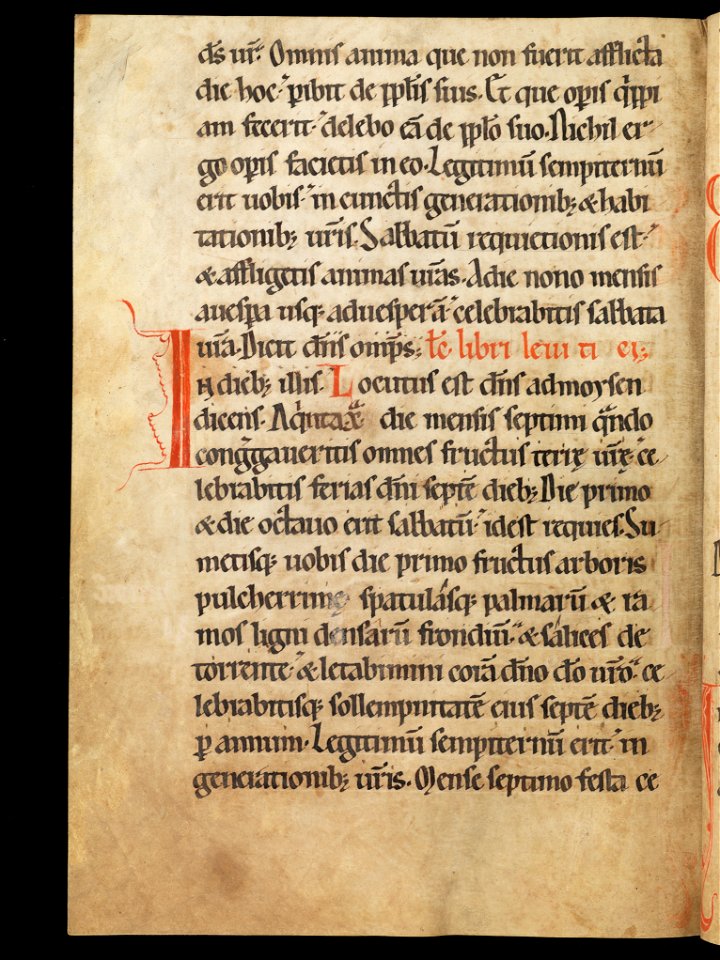 d̄s ur̄. Omnis anima que non fuerit afflicta
die hoc. p̲ibit de pp̄lis suis. Et que op̲is q̍ppi
am fecerit. delebo eā de pp̄lo suo. Nichil er
go op̲is facietis in eo. Legitimū sempiternū
erit uobis. in cunctis generationib; & habi
tationib; ur̄is. Sabbatū requietionis est.
& affligetis animas ur̄as. A die nono mensis
a uesp̲a usq; ad uesperā. celebrabitis sabbata
ur̄a. Dicit dn̄s omp̄s. Lc̄. libri leui ti ci;
In dieb; illis. Locutus est dn̄s ad moysen
dicens. A q̍nta x̊ die mensis septimi q̄ndo
congͣgaueritis omnes fructus terrę ur̄ę. ce
lebrabitis ferias dn̄i septē dieb;. Die primo
& die octauo erit sabbatū. id est requies. Su
metisq; uobis die primo fructus arboris
pulcherrimę. spatulasq; palmarū & ra
mos ligni densarū frondiū. & salices de
torrente. & letabimini corā dn̄o do̅ ur̄o. ce
lebrabitisq; sollempnitatē eius septē dieb;
p̲ annum. Legitimū sempiternū erit. in
generationib; ur̄is. Mense septimo festa ce